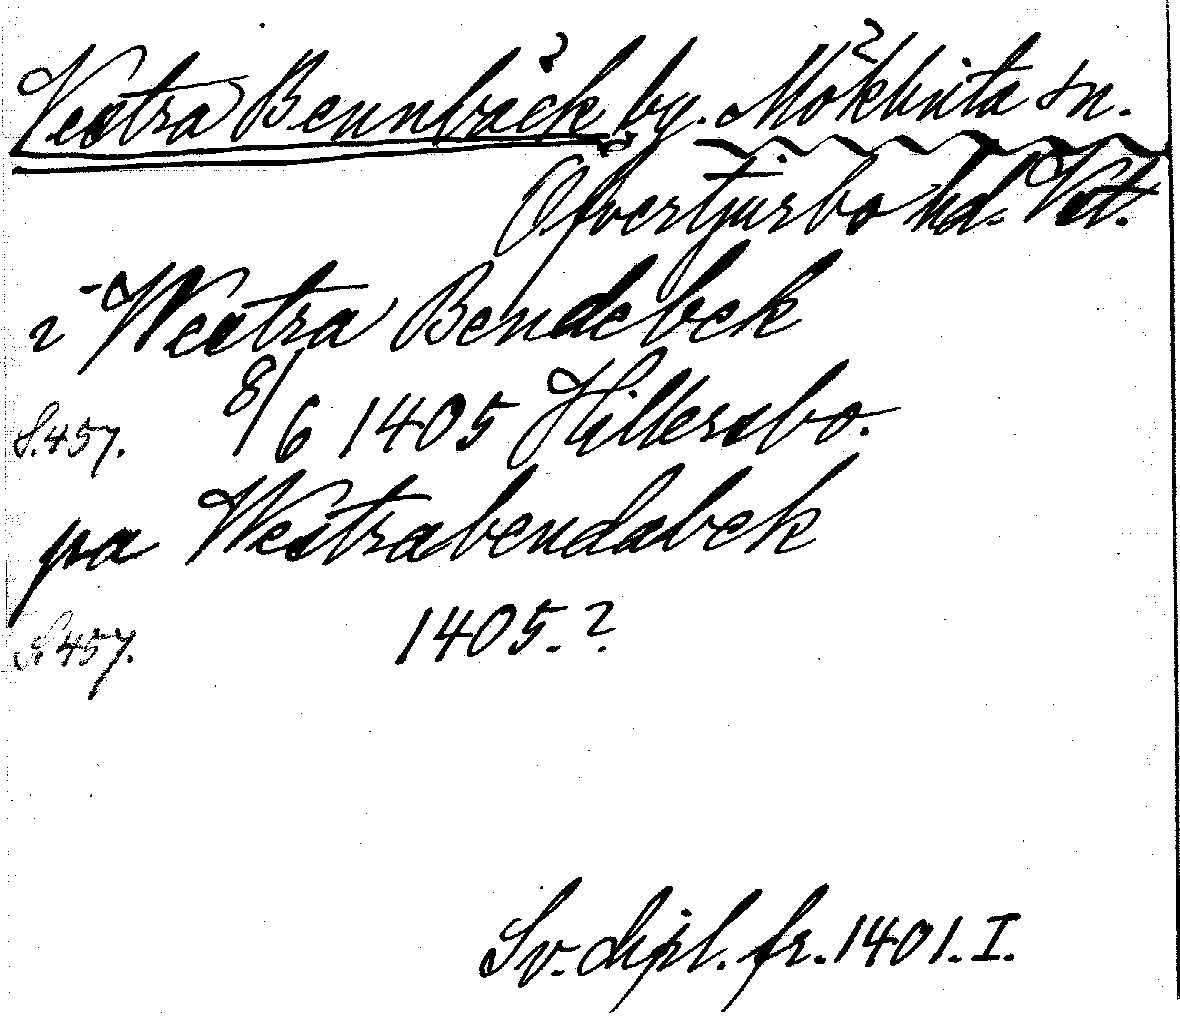 Vestra Bennbäck by. Möklinta sn.
Öfvertjurbo hd. Vst.
i Westra Bendebek
S. 457. 8/6 1405 Hillersbo.
pa Westrabendabek
S. 457. 1405.?
Sv. dipl. fr. 1401. I.